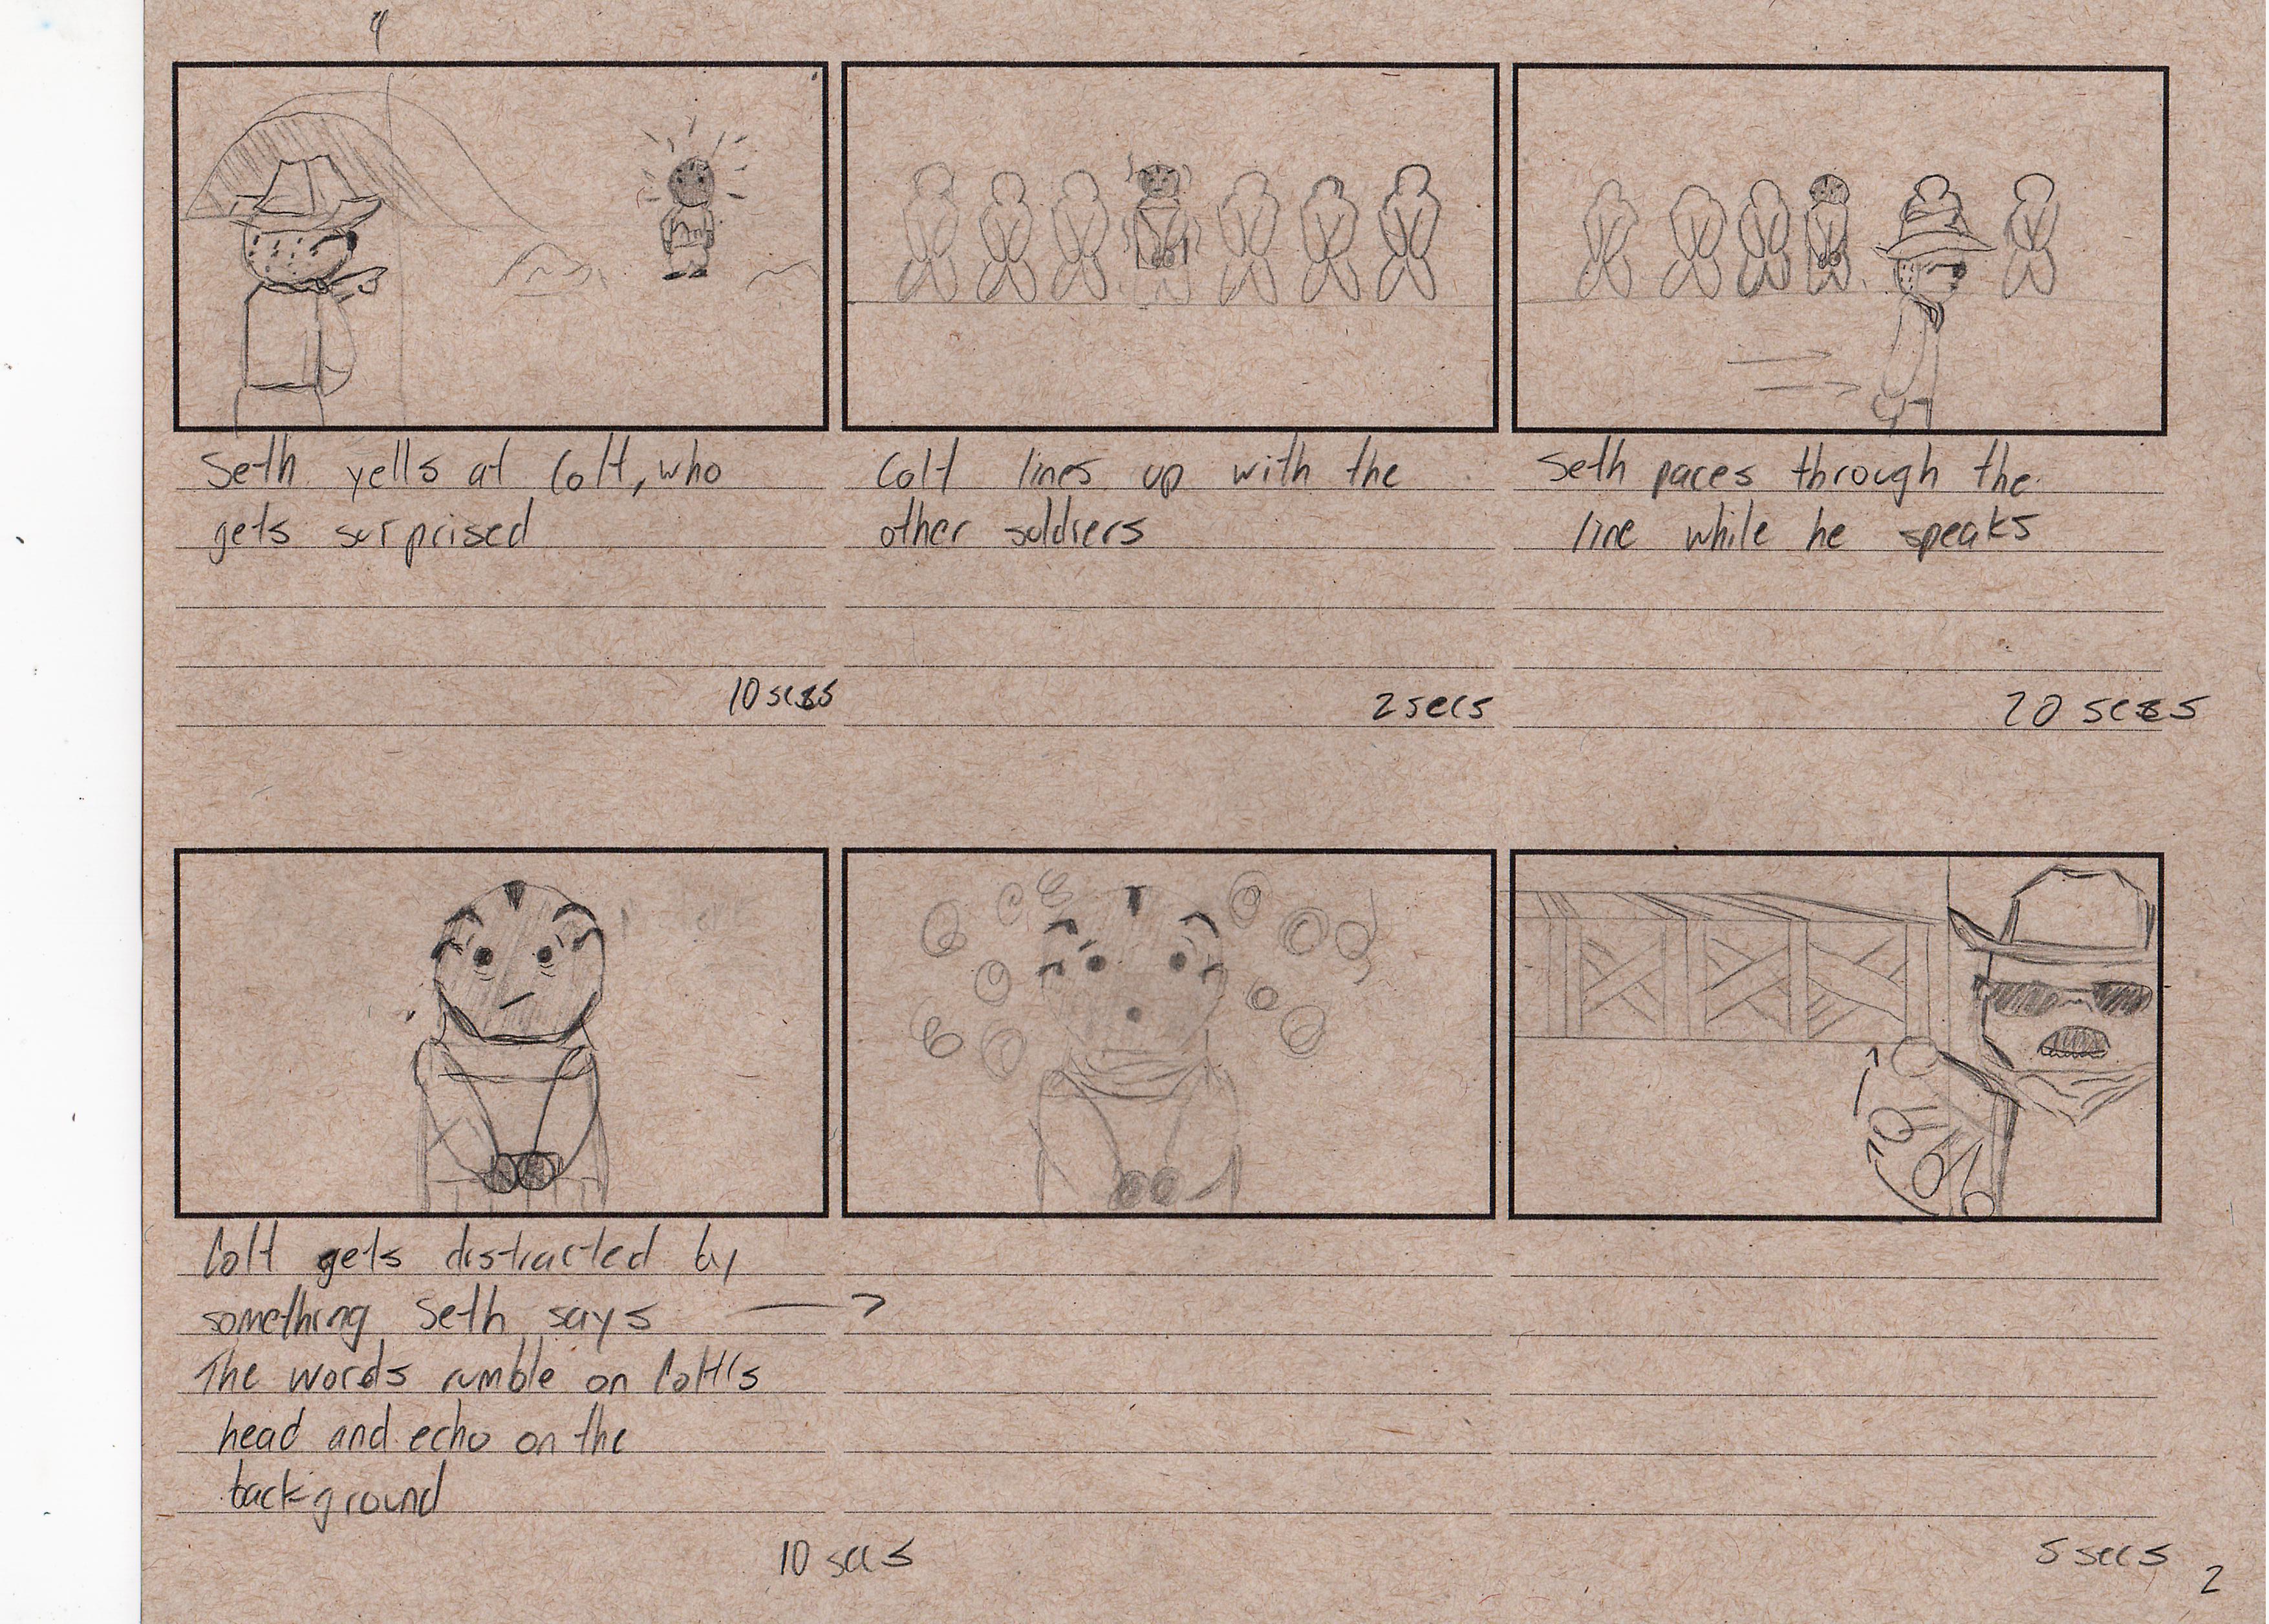 Seth yells at Colt, who
gets surprised
10 secs
Colt lines up with the
other soldiers
2 secs
Seth paces through the
line while he speaks
20 secs
Colt gets distracted by
something Seth says →
The words rumble on Colt's
head and echo on the
background
10 secs
5 secs
2